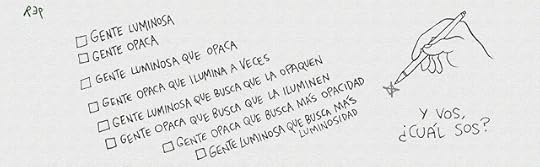 REP
GENTE LUMINOSA
GENTE OPACA
GENTE LUMINOSA QUE OPACA
GENTE OPACA QUE ILUMINA A VECES
GENTE LUMINOSA QUE BUSCA QUE LA OPAQUEN
GENTE OPACA QUE BUSCA QUE LA ILUMINEN
GENTE OPACA QUE BUSCA MÁS OPACIDAD
GENTE LUMINOSA QUE BUSCA MÁS
LUMINOSIDAD
Y VOS,
¿CUÁL SOS?